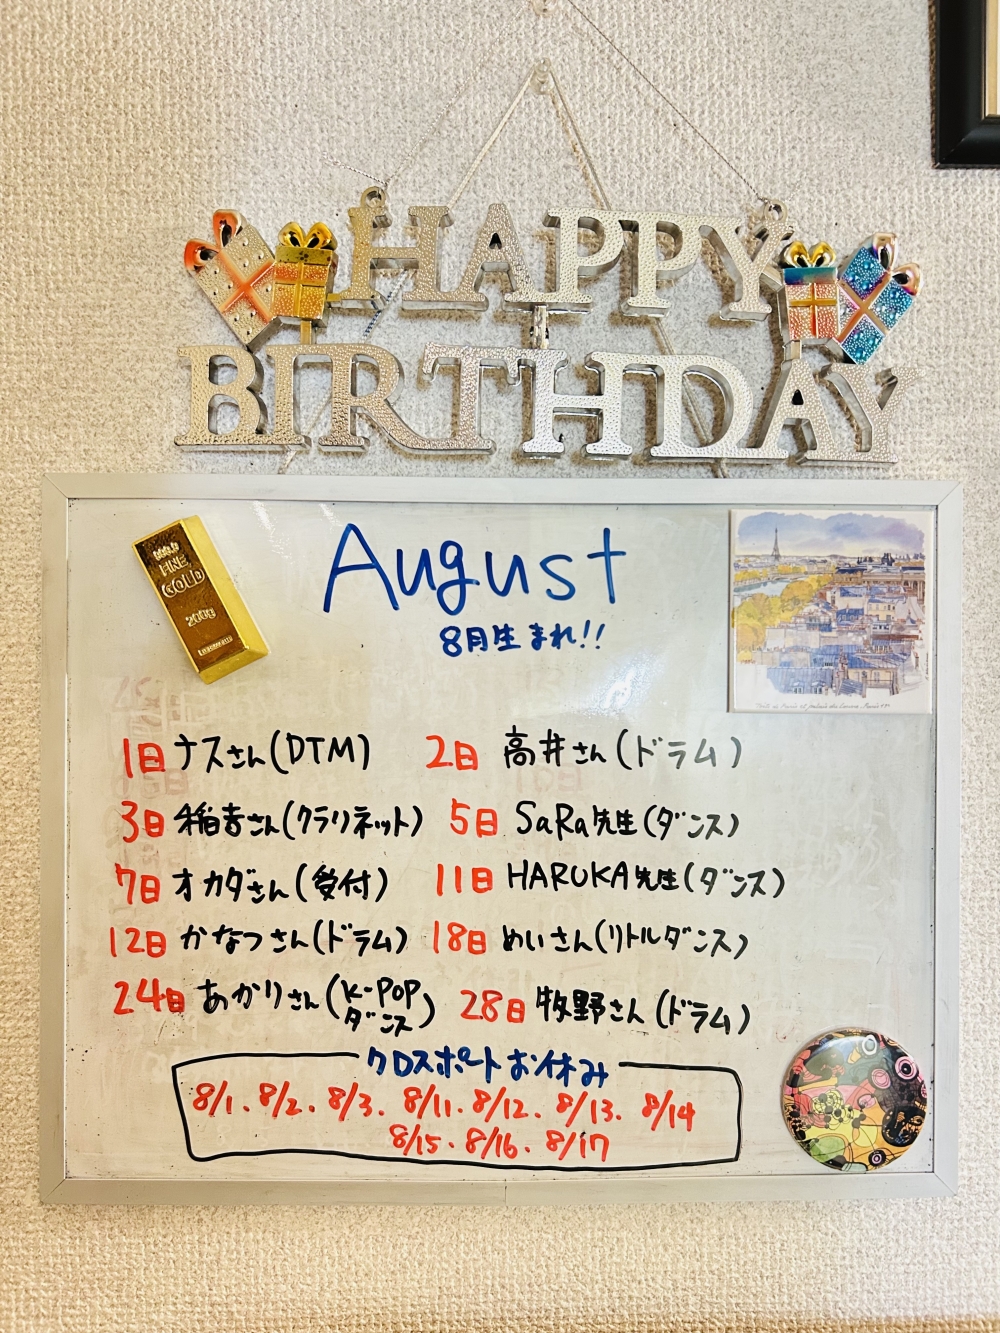 HAPPY
BIRTHDAY
999.9
FINE
GOLD
200g
August
8月生まれ!!
1日 ナスさん(DTM) 2日 高井さん(ドラム)
3日 稲吉さん(クラリネット) 5日 SaRa先生(ダンス)
7日 オカダさん(受付) 11日 HARUKA先生(ダンス)
12日 かなつさん(ドラム) 18日 めいさん(リトルダンス)
24日 あかりさん(K-POPダンス) 28日 牧野さん(ドラム)
クロスポートお休み
8/1、8/2、8/3、8/11、8/12、8/13、8/14
8/15、8/16、8/17